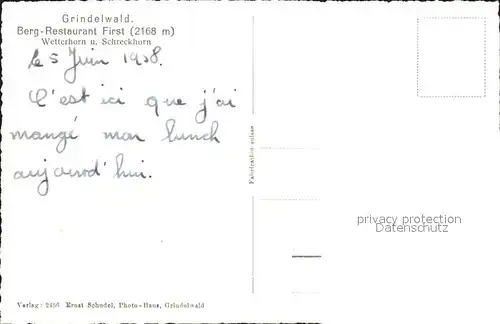 Grindelwald.
Berg-Restaurant First (2168 m)
Wetterhorn u. Schreckhorn
Le 5 Juin 1958.
C'est ici que j'ai
mangé mon lunch
aujourd'hui.
Fabrication suisse
privacy protection
Veldkamp-Domains
Verlag: 2456 Ernst Schudel, Photo-Haus, Grindelwald